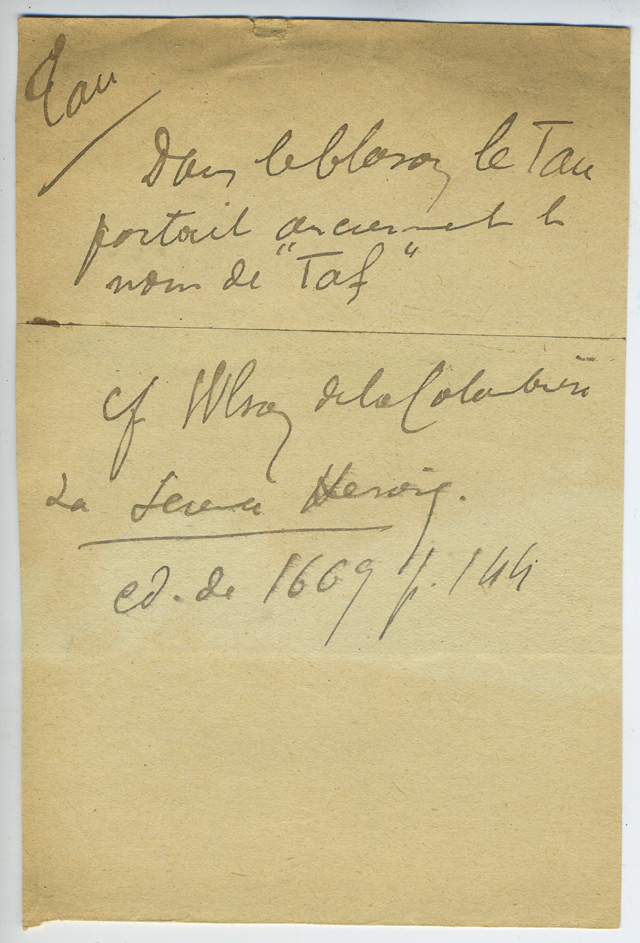 Tau
Dans le blason, le Tau
portait anciennement le
nom de "Taf"
cf Wlson de la Colombière
La Science Heroiq.
ed. de 1669 p. 144